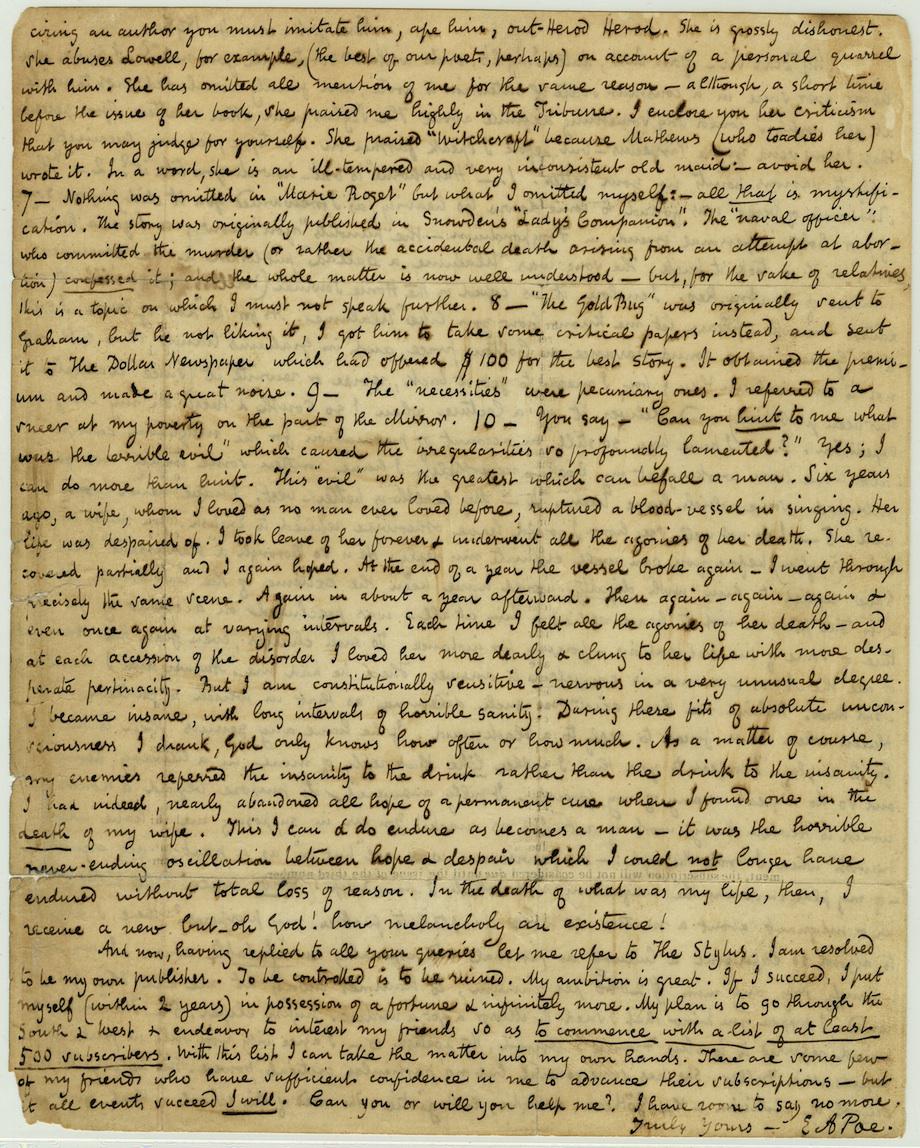 ciring an author you must imitate him, ape him, out-Herod Herod. She is grossly dishonest.
She abuses Lowell, for example, (the best of our poets, perhaps) on account of a personal quarrel
with him. She has omitted all mention of me for the same reason — although, a short time
before the issue of her book, she praised me highly in the Tribune. I enclose you her criticism
that you may judge for yourself. She praised "Witchcraft" because Mathews (who toadies her)
wrote it. In a word, she is an ill-tempered and very inconsistent old maid — avoid her.
7 — Nothing was omitted in "Marie Roget" but what I omitted myself: — all that is mystifi-
cation. The story was originally published in Snowden's "Lady's Companion". The "naval officer"
who committed the murder (or rather the accidental death arising from an attempt at abor-
tion) confessed it; and the whole matter is now well understood — but, for the sake of relatives,
this is a topic on which I must not speak further. 8 — "The Gold Bug" was originally sent to
Graham, but he not liking it, I got him to take some critical papers instead, and sent
it to The Dollar Newspaper which had offered $100 for the best story. It obtained the premi-
um and made a great noise. 9 — The "necessities" were pecuniary ones. I referred to a
sneer at my poverty on the part of the Mirror. 10 — You say — "Can you hint to me what
was the terrible evil" which caused the irregularities so profoundly lamented?" Yes; I
can do more than hint. This "evil" was the greatest which can befall a man. Six years
ago, a wife, whom I loved as no man ever loved before, ruptured a blood-vessel in singing. Her
life was despaired of. I took leave of her forever & underwent all the agonies of her death. She re-
covered partially and I again hoped. At the end of a year the vessel broke again — I went through
precisely the same scene. Again in about a year afterward. Then again — again — again &
even once again at varying intervals. Each time I felt all the agonies of her death — and
at each accession of the disorder I loved her more dearly & clung to her life with more des-
perate pertinacity. But I am constitutionally sensitive — nervous in a very unusual degree.
I became insane, with long intervals of horrible sanity. During these fits of absolute uncon-
sciousness I drank, God only knows how often or how much. As a matter of course,
my enemies referred the insanity to the drink rather than the drink to the insanity.
I had indeed, nearly abandoned all hope of a permanent cure when I found one in the
death of my wife. This I can & do endure as becomes a man — it was the horrible
never-ending oscillation between hope & despair which I could not longer have
endured without total loss of reason. In the death of what was my life, then, I
receive a new but — oh God! how melancholy an existence!
And now, having replied to all your queries let me refer to The Stylus. I am resolved
to be my own publisher. To be controlled is to be ruined. My ambition is great. If I succeed, I put
myself (within 2 years) in possession of a fortune & infinitely more. My plan is to go through the
South & West & endeavor to interest my friends so as to commence with a list of at least
500 subscribers. With this list I can take the matter into my own hands. There are some few
of my friends who have sufficient confidence in me to advance their subscriptions — but
at all events succeed I will. Can you or will you help me? I have room to say no more.
Truly Yours — E A Poe.